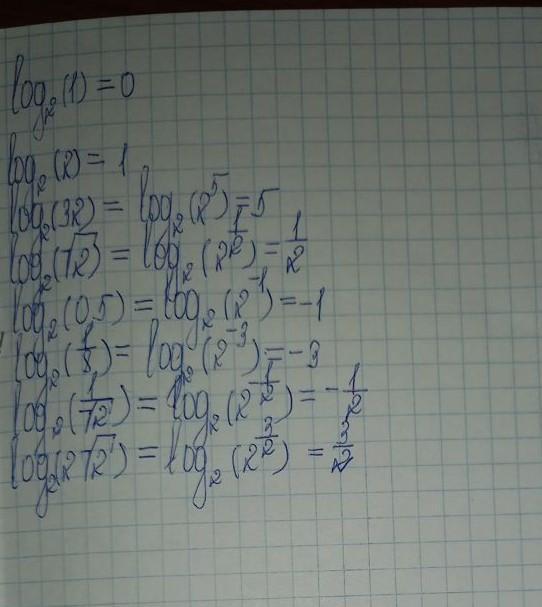 log₂(1) = 0
log₂(2) = 1
log₂(32) = log₂(2⁵) = 5
log₂(√2) = log₂(2^(1/2)) = 1/2
log₂(0,5) = log₂(2⁻¹) = -1
log₂(1/8) = log₂(2⁻³) = -3
log₂(1/√2) = log₂(2^(-1/2)) = -1/2
log₂(2√2) = log₂(2^(3/2)) = 3/2